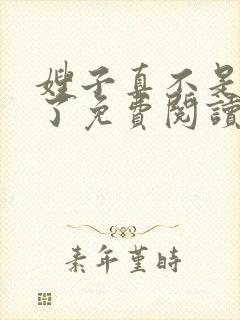 嫂子真不是
了免費閱讀
素年堇時